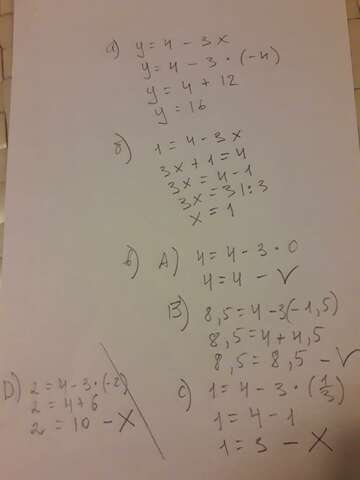 а) y = 4 - 3x
y = 4 - 3 · (-4)
y = 4 + 12
y = 16
б) 1 = 4 - 3x
3x + 1 = 4
3x = 4 - 1
3x = 3 | : 3
x = 1
в) A) 4 = 4 - 3 · 0
4 = 4 - V
B) 8,5 = 4 - 3(-1,5)
8,5 = 4 + 4,5
8,5 = 8,5 - V
C) 1 = 4 - 3 · (1/3)
1 = 4 - 1
1 = 3 - X
D) 2 = 4 - 3 · (-2)
2 = 4 + 6
2 = 10 - X